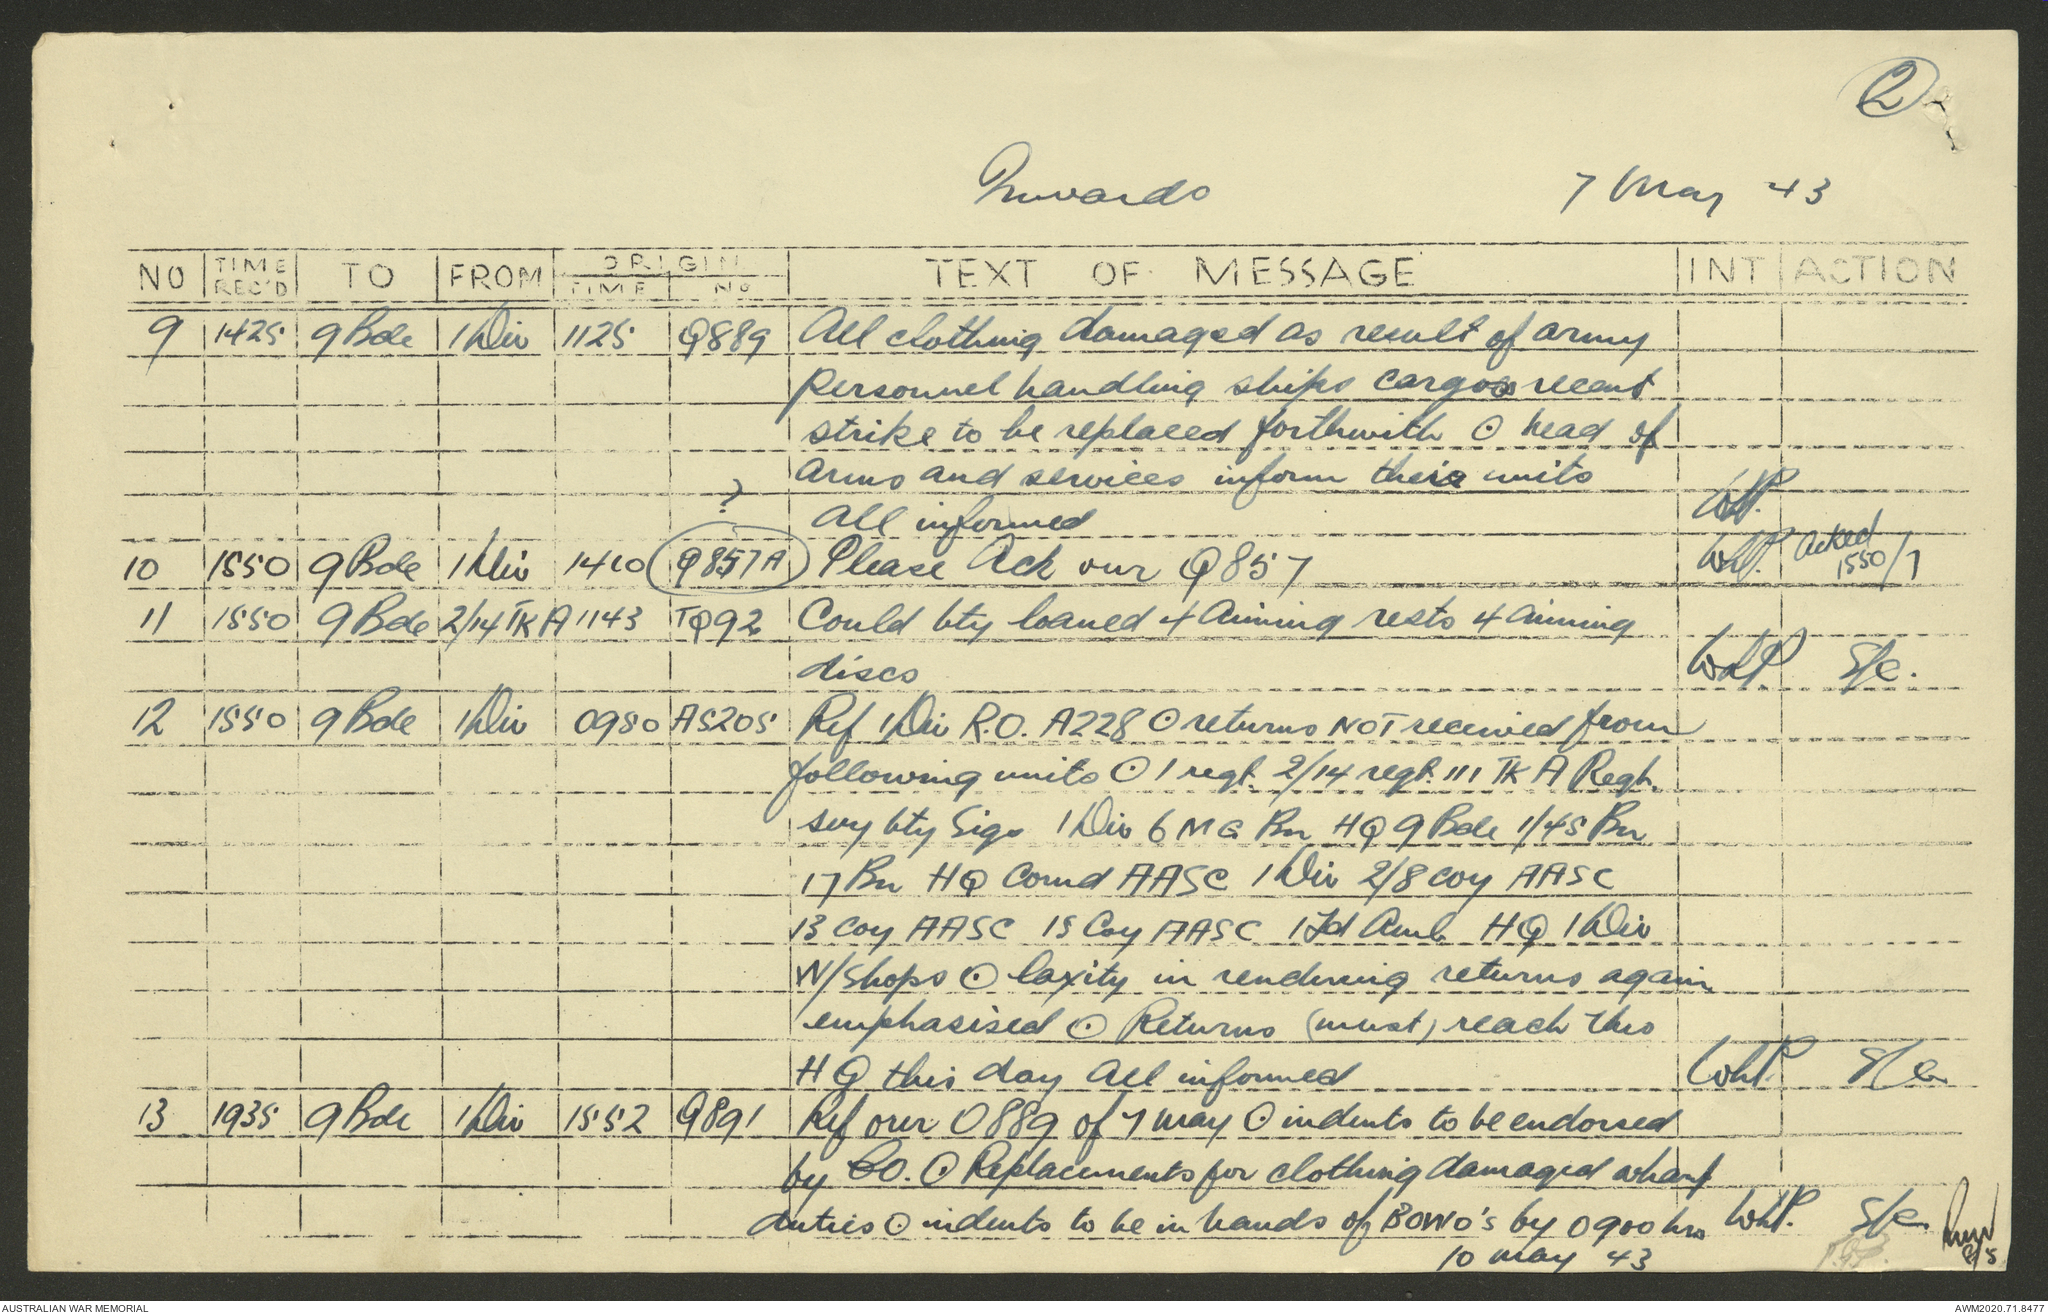 2
Inwards 7 May 43
NO TIME REC'D TO FROM ORIGIN TIME No TEXT OF MESSAGE INT ACTION
9 1425 9 Bde 1 Div 1125 Q889 All clothing damaged as result of army
personnel handling ships cargos recent
strike to be replaced forthwith ⊙ head of
arms and services inform their units
?
All informed WhP.
10 1550 9 Bde 1 Div 1410 Q857A Please Ack our Q857 WhP. Acked 1550/7
11 1550 9 Bde 2/14 TK A 1143 TQ92 Could bty loaned 4 aiming rests 4 aiming
discs WhP S/c.
12 1550 9 Bde 1 Div 0950 AS205 Ref 1 Div R.O. A228 ⊙ returns NOT received from
following units ⊙ 1 regt. 2/14 regt. 111 TK A Regt.
svy bty Sigs 1 Div 6 M G Bn HQ 9 Bde 1/45 Bn
17 Bn HQ Comd AASC 1 Div 2/8 coy AASC
13 coy AASC 15 Coy AASC 1 Fd Amb HQ 1 Div
W/Shops ⊙ laxity in rendering returns again
emphasised ⊙ Returns (must) reach this
HQ this day All informed WhP. S/c
13 1935 9 Bde 1 Div 1552 Q891 Ref our Q889 of 7 May ⊙ indents to be endorsed
by CO. ⊙ Replacements for clothing damaged wharf
duties ⊙ indents to be in hands of BOWO's by 0900 hrs WhP. S/c.
10 May 43 8/5
AUSTRALIAN WAR MEMORIAL AWM2020.71.8477